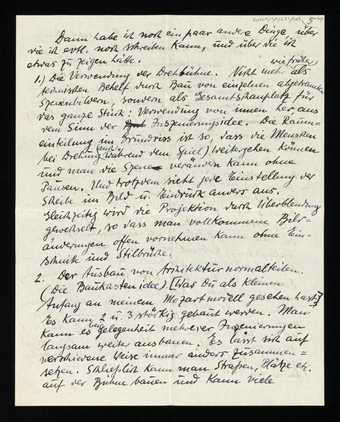 Dann habe ich noch ein paar andere Dinge, über
die ich evtl. noch schreiben kann, und über die ich
etwas zu zeigen hätte.
wie früher
1.) Die Verwendung der Drehbühne. Nicht mehr als
technischen Behelf durch Bau von einzelnen abgetrennten
Szenenbildern, sondern als Gesamtschauplatz für
das ganze Stück: Verwendung von innen her, aus
dem Sinn der Inszenierungsidee. Die Raum-
einteilung im Grundriss ist so, dass die Menschen
bei Drehung (auch während dem Spiel) weitergehen können
und man die Szene verändern kann ohne
Pausen. Und trotzdem sieht jede Einstellung der
Scheibe im Bild u. Eindruck anders aus.
Gleichzeitig wird die Projektion durch Überblendung
gewechselt, so dass man vollkommene Bild-
änderungen offen vornehmen kann ohne Ein-
schnitt und Stilbrüche.
2. Der Ausbau von Architekturnormalteilen.
(Die Baukastenidee) [Was Du als kleinen
Anfang an meinem Mozartmodell gesehen hast]
Es kann 2 u. 3 stöckig gebaut werden. Man
kann es bei Gelegenheit mehrerer Inszenierungen
langsam weiter ausbauen. Es lässt sich auf
verschiedene Weise immer anders zusammen-
setzen. Schliesslich kann man Straßen, Plätze etc.
auf der Bühne bauen und kann viele